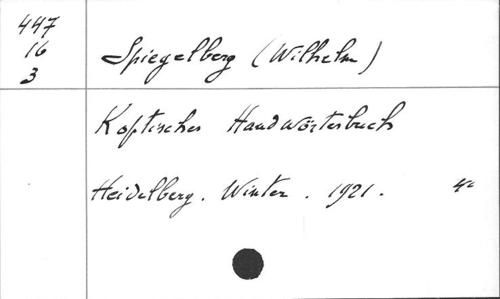 447
16
3
Spiegelberg (Wilhelm)
Koptisches Handwörterbuch
Heidelberg. Winter. 1921. 4°